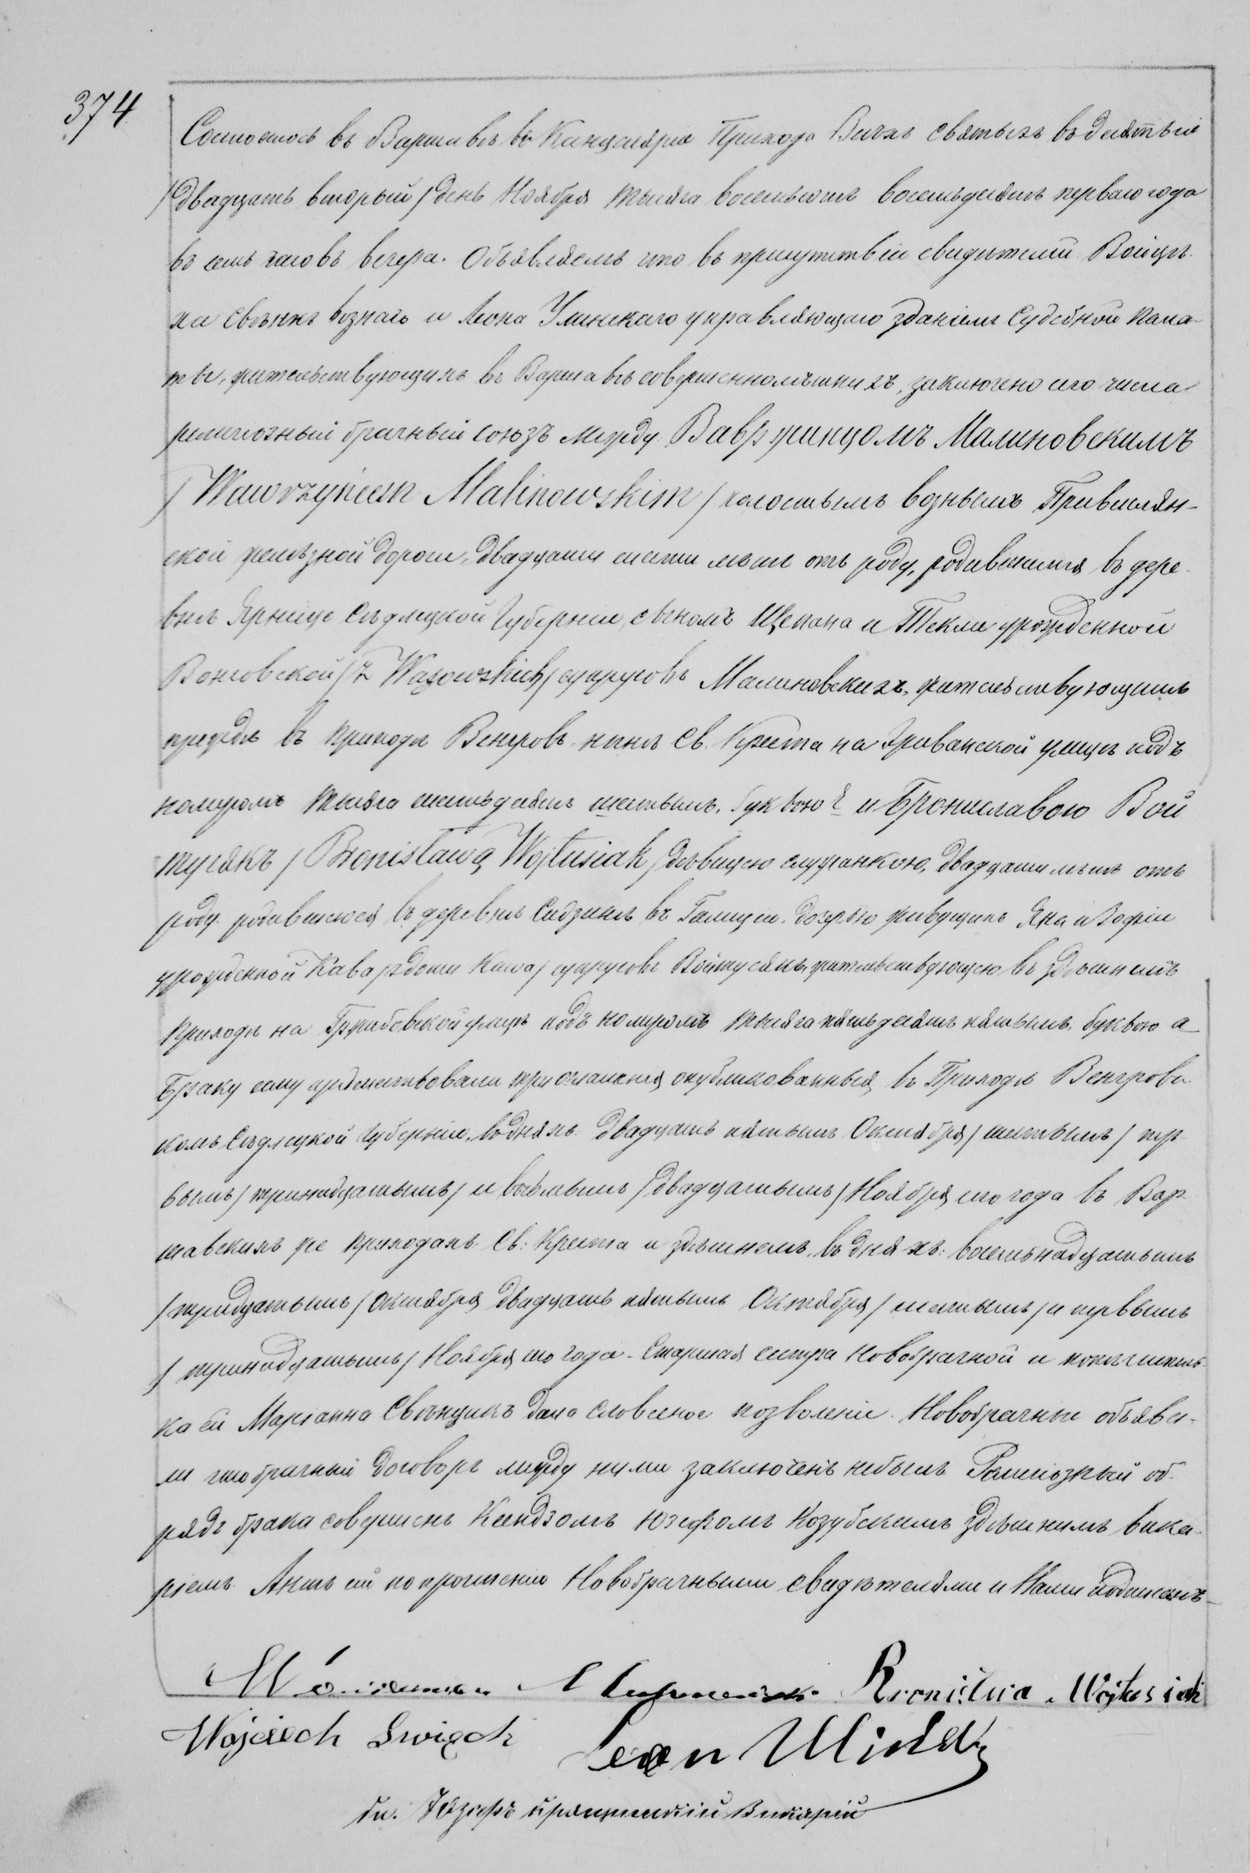 374
Состоялось въ Варшавѣ въ Канцеляріи Прихода Всѣхъ Святыхъ въ десятый
/двадцать вторый/ день Ноября тысяча восемьсотъ восемьдесятъ перваго года
въ семь часовъ вечера. Объявляемъ что въ присутствіи свидѣтелей Войцѣ-
ха возный и Леона Улинскаго управляющаго зданіемъ Судебной Пала-
ты, жительствующихъ въ Варшавѣ совершеннолѣтнихъ, заключено сего числа
религіозный брачный союзъ между Вавржинцомъ Малиновскимъ
/Wawrzyńcem Malinowskim/ холостымъ вознымъ Привислян-
ской желѣзной дороги, двадцати шести лѣтъ отъ роду, родившимся въ дере-
внѣ Ярнице Сѣдлецкой Губерніи, сыномъ Щепана и Текли урожденной
Вонсовской /z Wąsowskich/ супруговъ Малиновскихъ, жительствующимъ
прежде въ приходѣ Венгровъ нынѣ Св. Креста на Эриванской улицѣ подъ
номеромъ тысяча шестьдесятъ шестымъ, буквою и Брониславою Вой
тусякъ /Bronisławą Wojtusiak/ дѣвицею служанкою, двадцати лѣтъ отъ
роду родившеюся въ деревнѣ Сидзинѣ въ Галиціи, дочерью живущихъ Яна и Зофіи
урожденной супруговъ Войтусякъ, жительствующею въ здѣшнемъ
приходѣ на Гржибовской улицѣ подъ номеромъ тысяча пятьдесятъ пятымъ, буквою а
Браку сему предшествовали три оглашенія опубликованныя въ Приходѣ Венгровс-
комъ Сѣдлецкой Губерніи, въ дняхъ двадцать пятымъ Октября /шестымъ/ пер-
вымъ /тринадцатымъ/ и восьмымъ /двадцатымъ/ Ноября сего года въ Вар-
шавскихъ же приходахъ Св: Креста и здѣшнемъ, въ дняхъ: восемьнадцатымъ
/тридцатымъ/ Октября, двадцать пятымъ Октября /шестымъ/ и первымъ
/тринадцатымъ/ Ноября сего года. Старшая сестра Новобрачной и попечитель-
ка ей Маріанна дала словесное позволеніе. Новобрачные объяви-
ли что брачный договоръ между ними заключенъ небылъ Религіозный об-
рядъ брака совершенъ Ксендзомъ Юзефомъ Козубскимъ здѣшнимъ вика-
ріемъ. Актъ сей по прочтеніи Новобрачными свидѣтелями и Нами подписанъ
Bronisława Wojtusiak
Wojciech Święch Leon Uliński